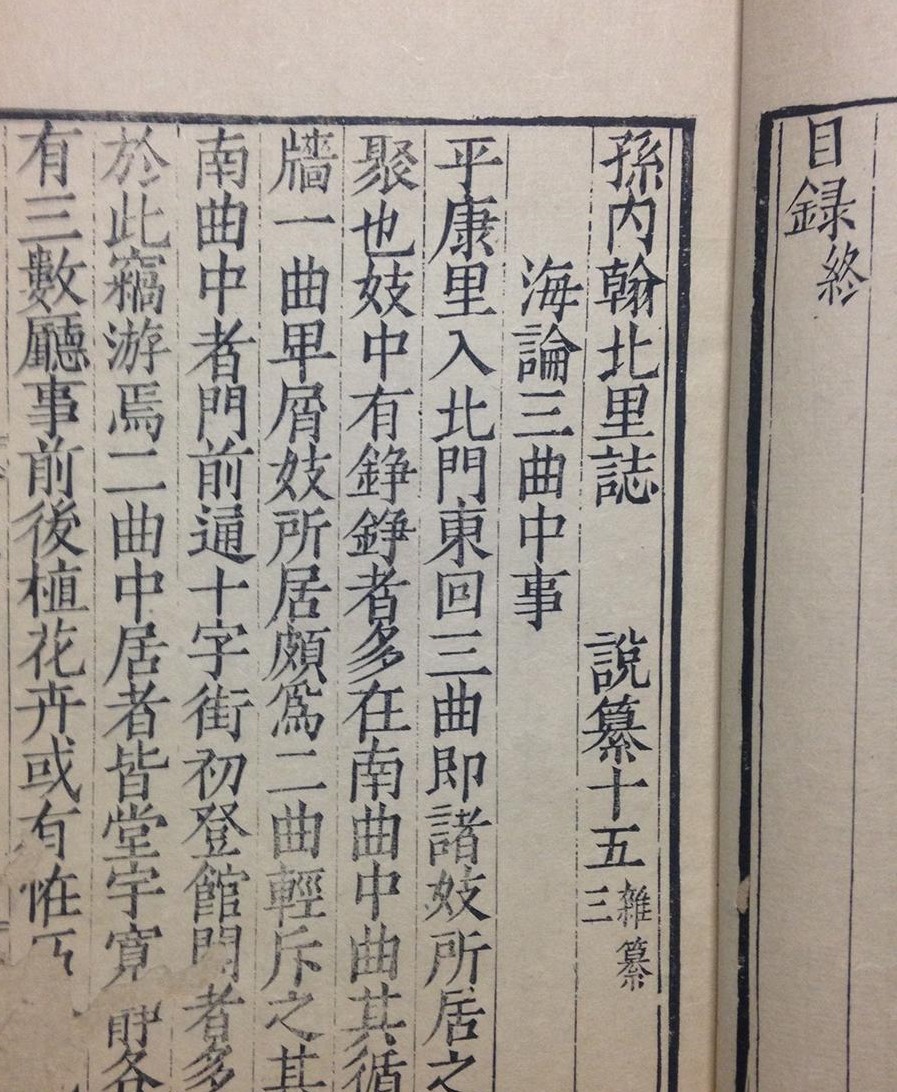 目録終
孫内翰北里誌 說纂十五 雜纂三
海論三曲中事
平康里入北門東回三曲即諸妓所居之
聚也妓中有錚錚者多在南曲中曲其循
牆一曲卑屑妓所居頗為二曲輕斥之其
南曲中者門前通十字街初登館閣者多
於此竊游焉二曲中居者皆堂宇寬靜各
有三數廳事前後植花卉或有怪